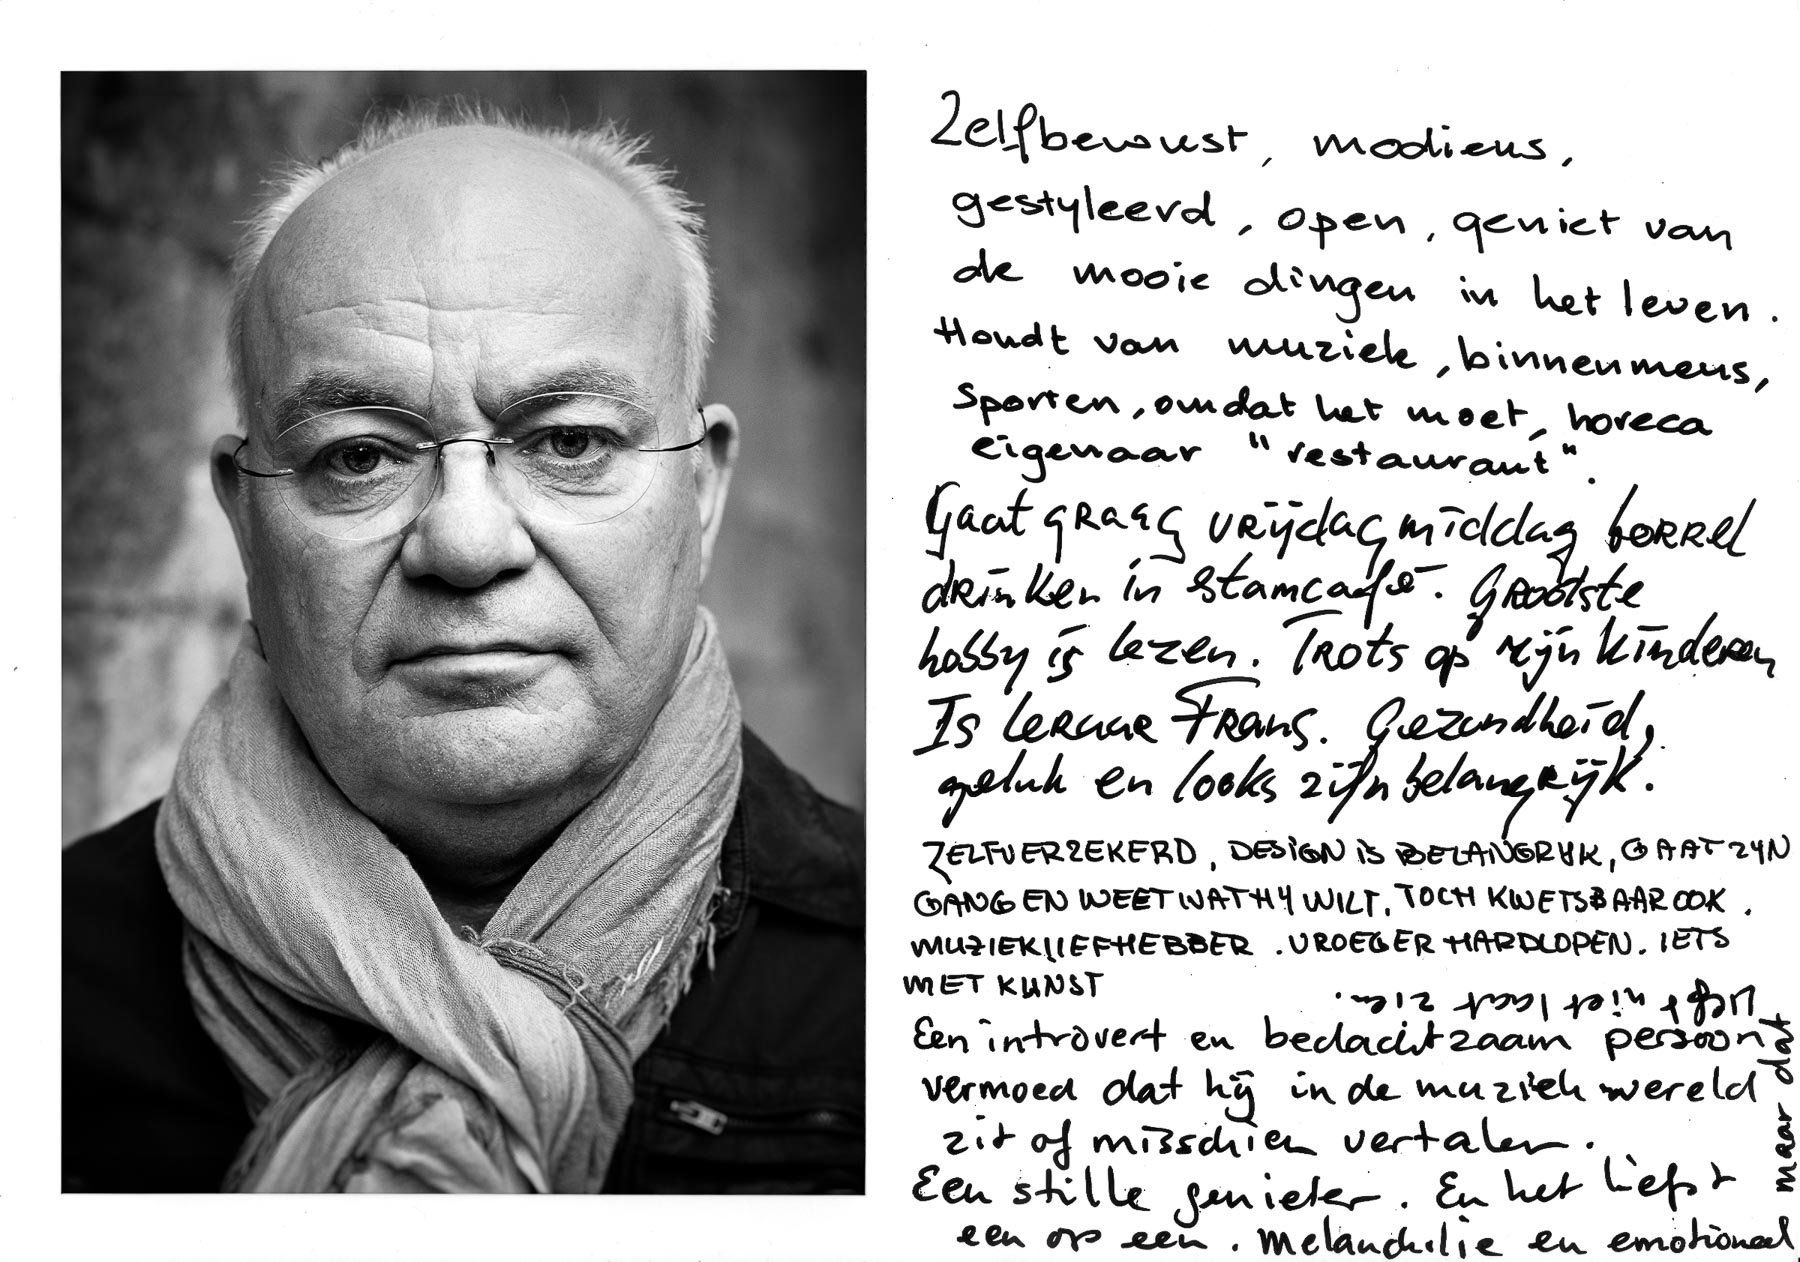 Zelfbewust, modieus,
gestyleerd, open, geniet van
de mooie dingen in het leven.
Houdt van muziek, binnenmeus,
sporten, omdat het moet, horeca
eigenaar "restaurant".
Gaat graag vrijdagmiddag borrel
drinken in stamcafé. Grootste
hobby is lezen. Trots op zijn kinderen
Is leraar Frans. Gezondheid,
geluk en looks zijn belangrijk.
ZELFVERZEKERD, DESIGN IS BELANGRYK, GAAT ZYN
GANG EN WEET WAT HY WILT. TOCH KWETSBAAR OOK.
MUZIEKLIEFHEBBER. VROEGER HARDLOPEN. IETS
MET KUNST
Een introvert en bedachtzaam persoon
vermoed dat hij in de muziek wereld
zit of misschien vertaler.
Een stille genieter. En het liefst
een op een. Melancholie en emotioneel
maar dat
niet laat zien.